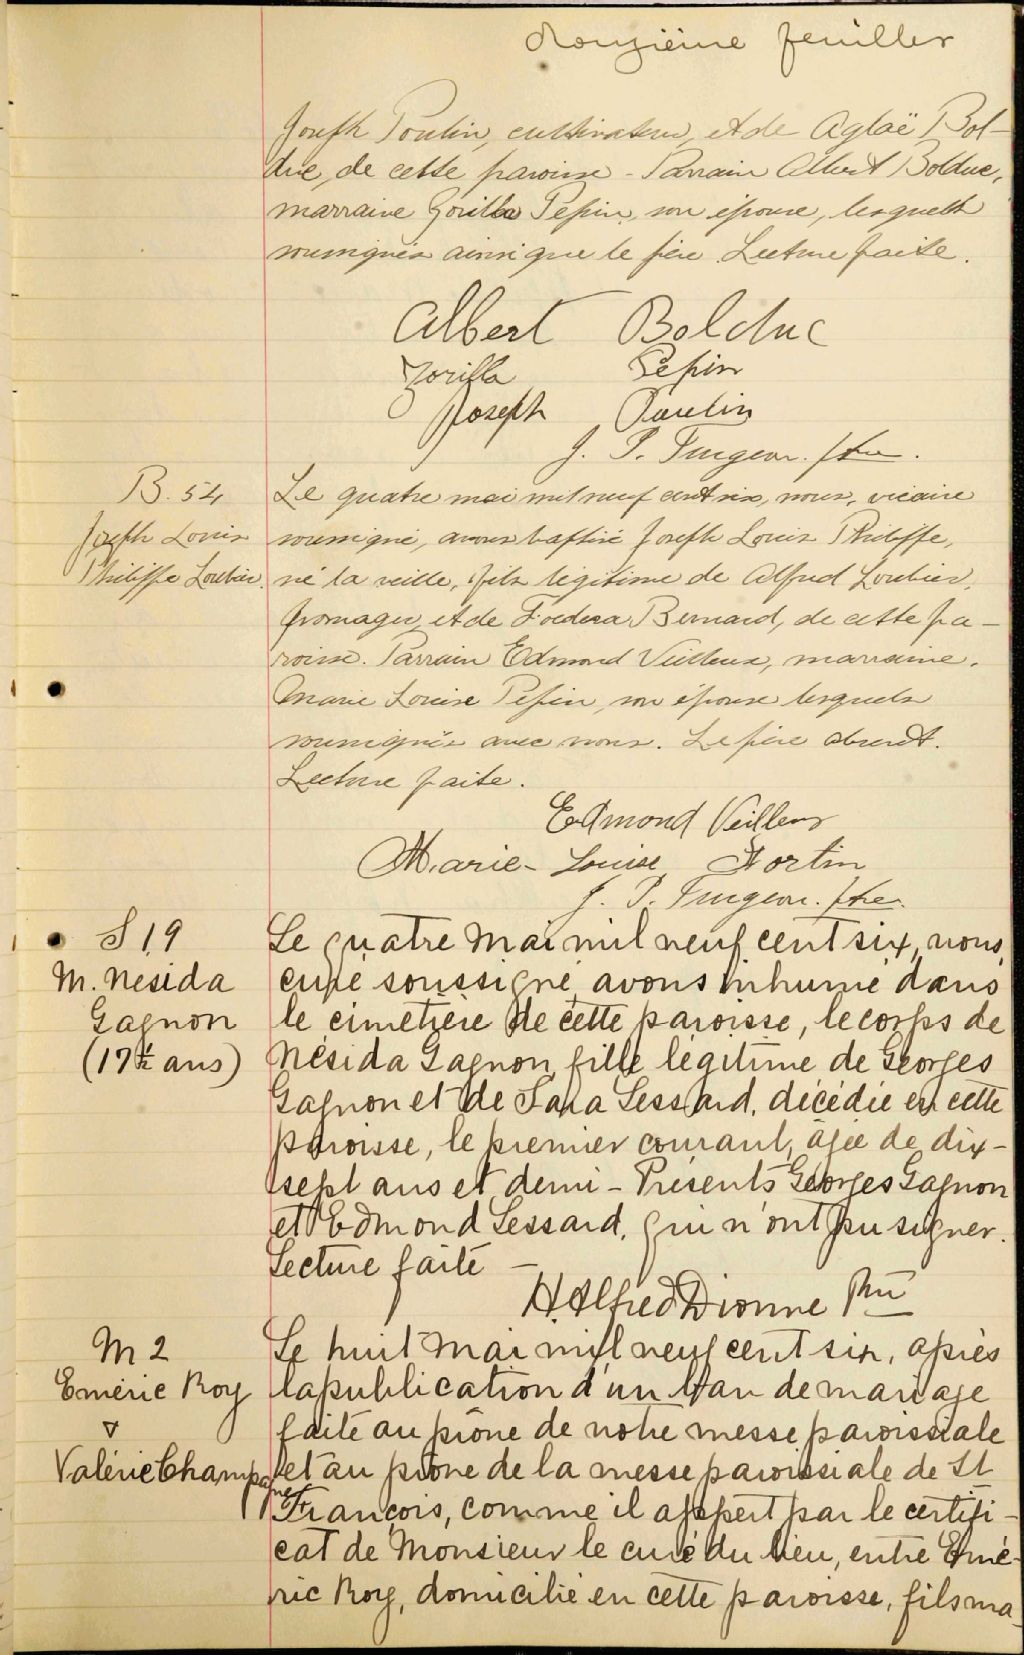 douzième feuillet
Joseph Poulin, cultivateur, et de Aglaë Bol-
duc, de cette paroisse - Parrain Albert Bolduc,
marraine Zorilla Pepin, son épouse, lesquels
soussignés ainsi que le père. Lecture faite.
Albert Bolduc
Zorilla Pepin
Joseph Poulin
J. P. Turgeon. ptre.
B. 54
Joseph Louis
Philippe Loubier.
Le quatre mai mil neuf cent six, nous, vicaire
soussigné, avons baptisé Joseph Louis Philippe,
né la veille, fils légitime de Alfred Loubier,
fromager, et de Foedera Bernard, de cette pa-
roisse. Parrain Edmond Veilleux, marraine.
Marie Louise Pépin, son épouse lesquels
soussignés avec nous. Le père absent.
Lecture faite.
Edmond Veilleux
Marie-Louise Fortin
J. P. Turgeon. ptre.
S 19
M. Nésida
Gagnon
(17½ ans)
Le quatre Mai mil neuf cent six, nous,
curé soussigné, avons inhumé dans
le cimetière de cette paroisse, le corps de
Nésida Gagnon, fille légitime de Georges
Gagnon et de Sara Lessard, décédée en cette
paroisse, le premier courant, âgée de dix-
sept ans et demi - Présents Georges Gagnon
et Edmond Lessard, qui n'ont pu signer.
Lecture faite -
H. Alfred Dionne Ptre
M 2
Eméric Roy
&
Valérie Champagne
Le huit Mai mil neuf cent six, après
la publication d'un ban de mariage
faite au prône de notre messe paroissiale
et au prône de la messe paroissiale de St
François, comme il appert par le certifi-
cat de Monsieur le curé du lieu, entre Emé-
ric Roy, domicilié en cette paroisse, fils ma-